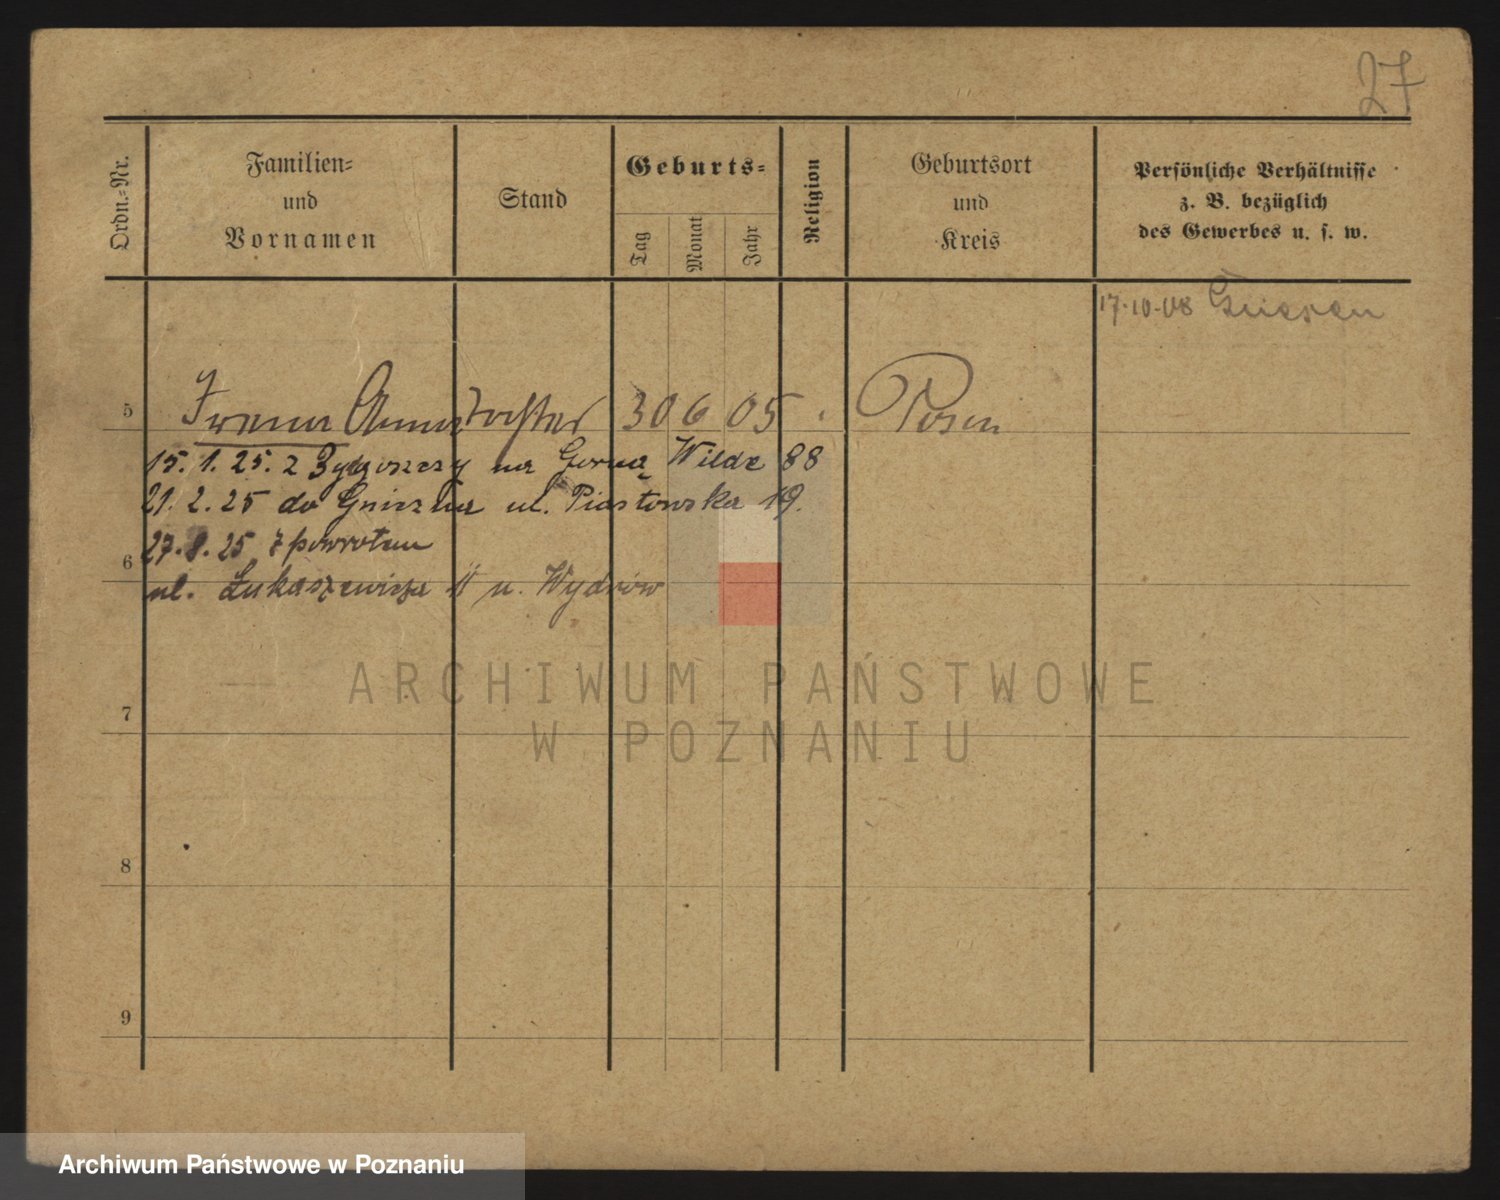 27
Ordn.=Nr.
Familien=
und
Vornamen
Stand
Geburts=
Tag
Monat
Jahr
Religion
Geburtsort
und
Kreis
Persönliche Verhältnisse
z. B. bezüglich
des Gewerbes u. s. w.
17.10.08 Gnesen
5 Irena Anna Tochter 30 6 05 Posen
15. 1. 25. z Bydgoszczy na Górną Wildę 88
21. 2. 25 do Gniezna ul. Piastowska 19.
27. 8. 25 z powrotem
6
ul. Łukaszewicza 11 u. Wydrów
7
8
9
ARCHIWUM PAŃSTWOWE
W POZNANIU
Archiwum Państwowe w Poznaniu